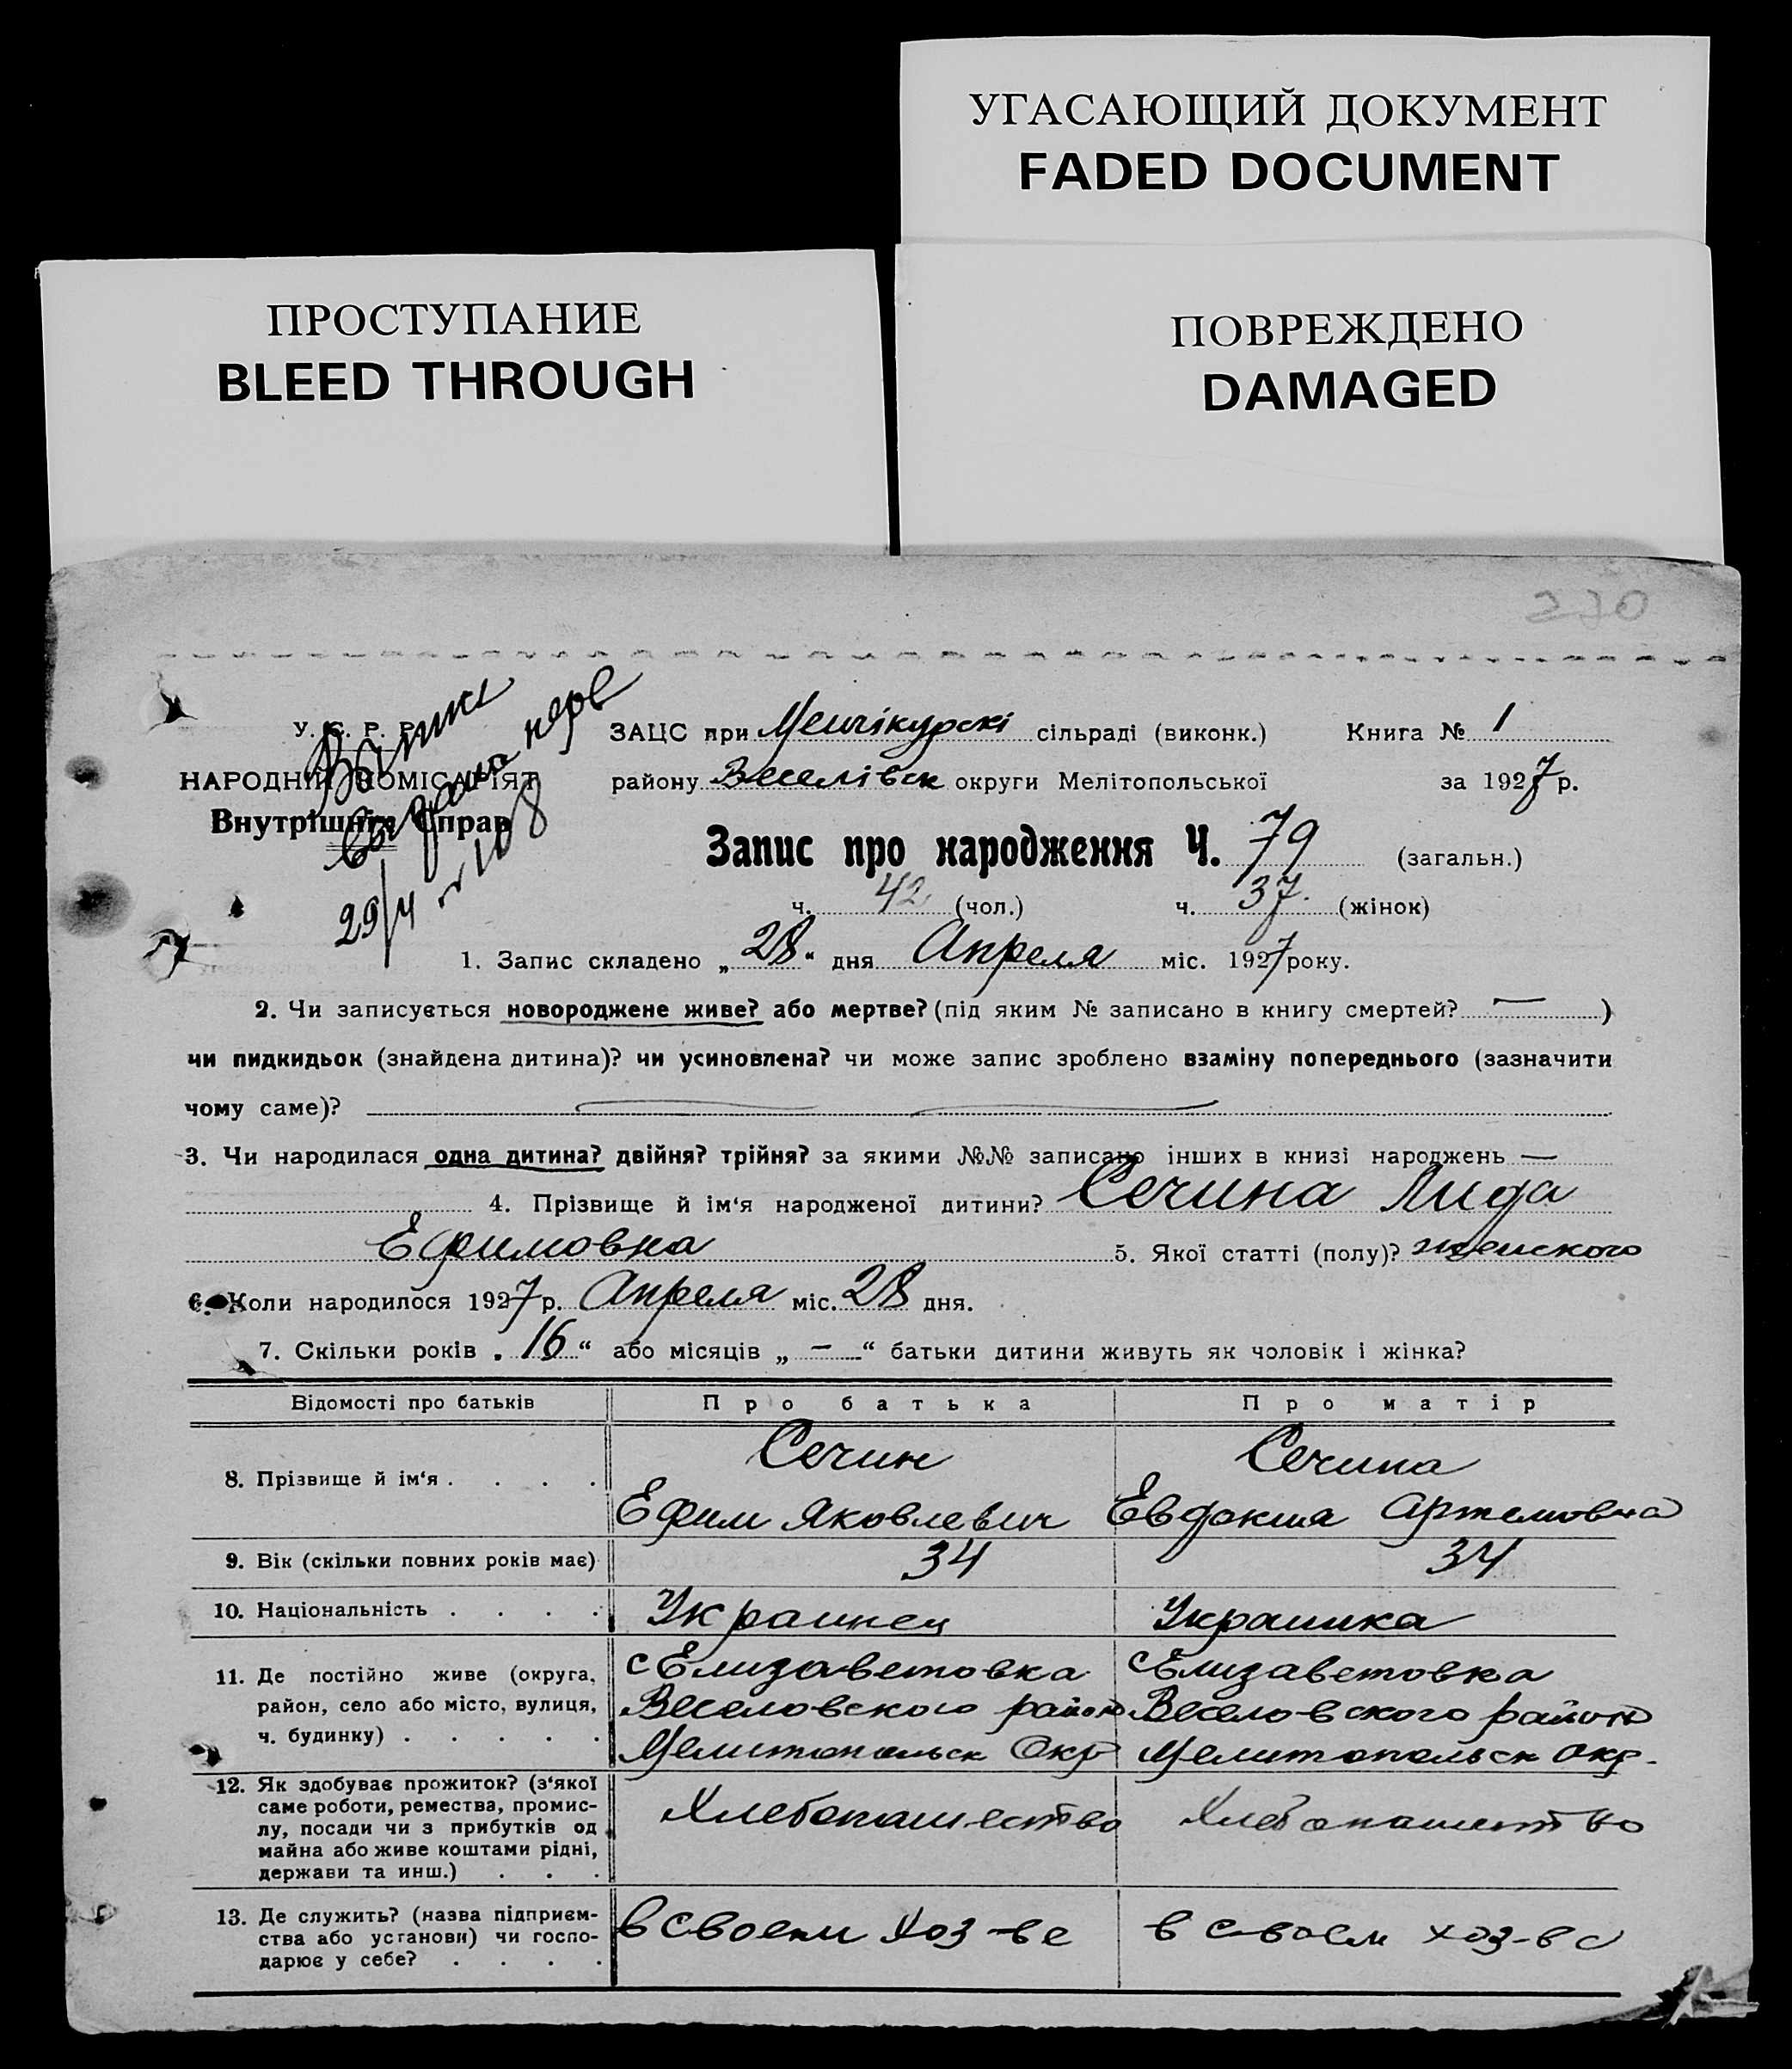 УГАСАЮЩИЙ ДОКУМЕНТ
FADED DOCUMENT
ПРОСТУПАНИЕ
BLEED THROUGH
ПОВРЕЖДЕНО
DAMAGED
270
У. С. Р. Р.
НАРОДНІЙ КОМІСАРІЯТ
Внутрішніх Справ
29/4
ЗАЦС при Менчікурскі сільраді (виконк.) Книга № 1
району Веселівск округи Мелітопольської за 1927 р.
Запис про народження Ч. 79 (загальн.)
ч. 42 (чол.) ч. 37. (жінок)
1. Запис складено „28“ дня Апреля міс. 1927 року.
2. Чи записується новороджене живе? або мертве? (під яким № записано в книгу смертей? — )
чи пидкидьок (знайдена дитина)? чи усиновлена? чи може запис зроблено взаміну попереднього (зазначити
чому саме)?
3. Чи народилася одна дитина? двійня? трійня? за якими №№ записано інших в книзі народжень —
4. Прізвище й ім‘я народженої дитини? Сечина Лида
Ефимовна 5. Якої статті (полу)? женского
6. Коли народилося 1927 р. Апреля міс. 28 дня.
7. Скільки років „16“ або місяців „—“ батьки дитини живуть як чоловік і жінка?
Відомості про батьків Про батька Про матір
8. Прізвище й ім‘я . . . . Сечин Сечина
Ефим Яковлевич Евдокия Артемовна
9. Вік (скільки повних років має) 34 34
10. Національність . . . . Украинец Украинка
11. Де постійно живе (округа, с Елизаветовка с Елизаветовка
район, село або місто, вулиця, Веселовского района Веселовского района
ч. будинку) . . . . . Мелитопольск Окр Мелитопольск окр.
12. Як здобуває прожиток? (з‘якої
саме роботи, ремества, промис- Хлебопашество Хлебопашество
лу, посади чи з прибутків од
майна або живе коштами рідні,
держави та инш.) . . .
13. Де служить? (назва підприєм- в своем хоз-ве в своем хоз-ве
ства або установи) чи госпо-
дарює у себе? . . . .